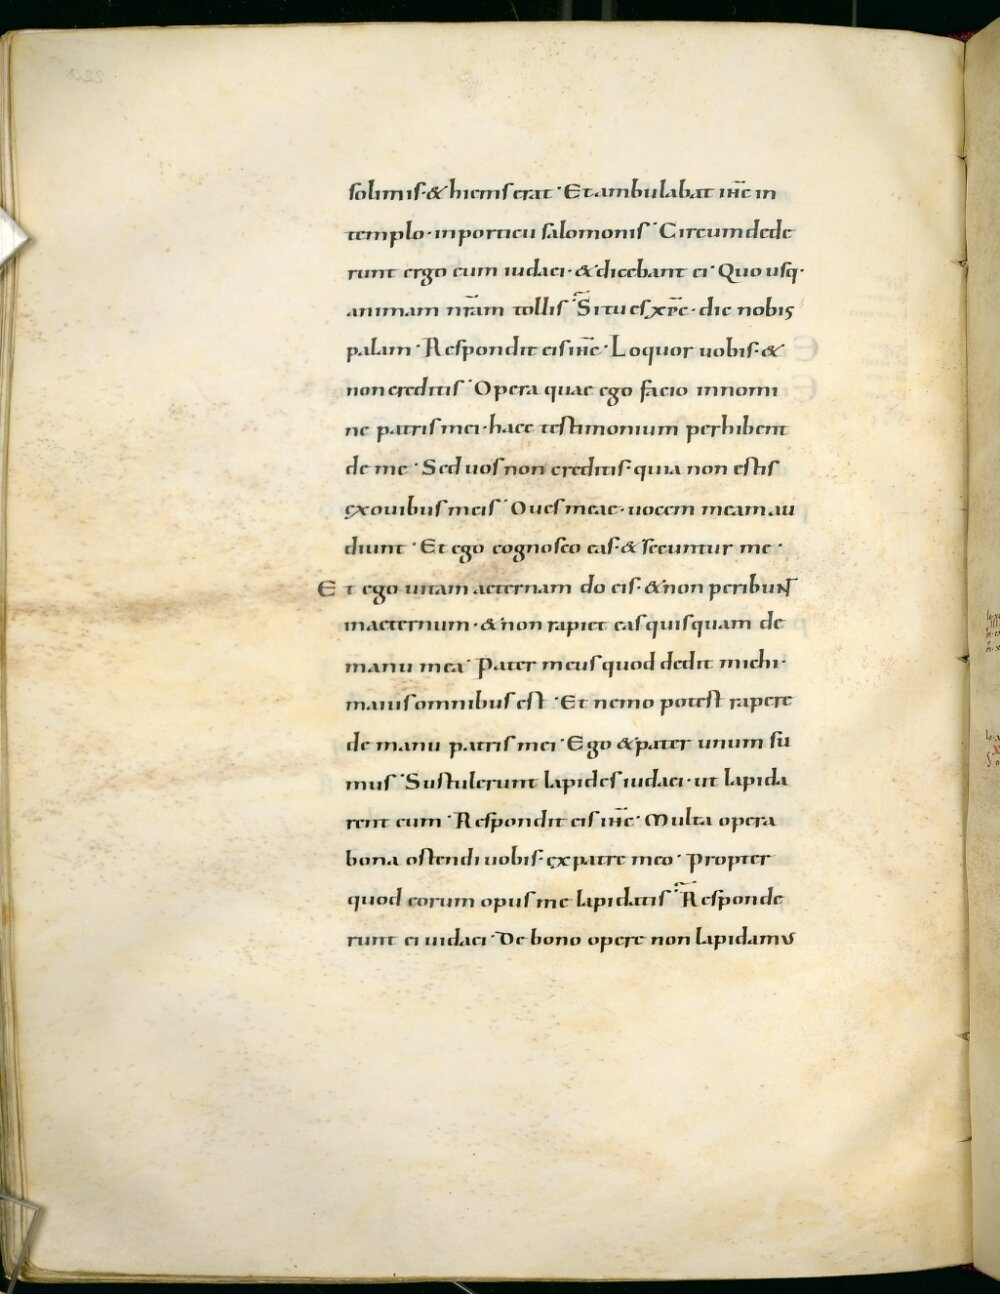 solimis · & hiems erat · Et ambulabat ih̅c in
templo · in porticu salomonis · Circumdede
runt ergo eum iudaei · & dicebant ei · Quo usq·
animam nr̅am tollis · Si tu es xp̅c · dic nobis
palam · Respondit eis ih̅c · Loquor uobis · &
non creditis · Opera quae ego facio in nomi
ne patris mei · haec testimonium perhibent
de me · Sed uos non creditis · quia non estis
ex ouibus meis · Oues meae · uocem meam au
diunt · Et ego cognosco eas · & secuntur me ·
Et ego uitam aeternam do eis · & non peribunt
in aeternum · & non rapiet eas quisquam de
manu mea · Pater meus quod dedit michi ·
maius omnibus est · Et nemo potest rapere
de manu patris mei · Ego & pater unum su
mus · Sustulerunt lapides iudaei · ut lapida
rent eum · Respondit eis ih̅c · Multa opera
bona ostendi uobis · ex patre meo · Propter
quod eorum opus me lapidatis · Responde
runt ei iudaei · De bono opere non lapidamus